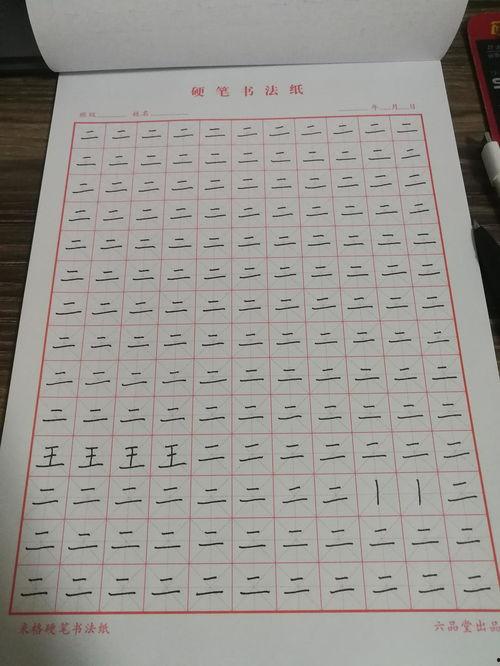 硬笔书法纸
班级 姓名 年 月 日
二 二 二 二 二 二 二 二 二 二 二
二 二 二 二 二 二 二 二 二 二 二
二 二 二 二 二 二 二 二 二 二 二
二 二 二 二 二 二 二 二 二 二 二
二 二 二 二 二 二 二 二 二 二 二
二 二 二 二 二 二 二 二 二 二 二
二 二 二 二 二 二 二 二 二 二 二
二 二 二 二 二 二 二 二 二 二 二
二 二 二 二 二 二 二 二 二 二 二
二 二 二 二 二 二 二 二 二 二 二
王 王 王 王 二 二 二 二 二 二 二
二 二 二 二 二 二 二 二 丨 丨 二
二 二 二 二 二 二 二 二 二 二 二
二 二 二 二 二 二 二 二 二 二 二
米格硬笔书法纸 六品堂出品